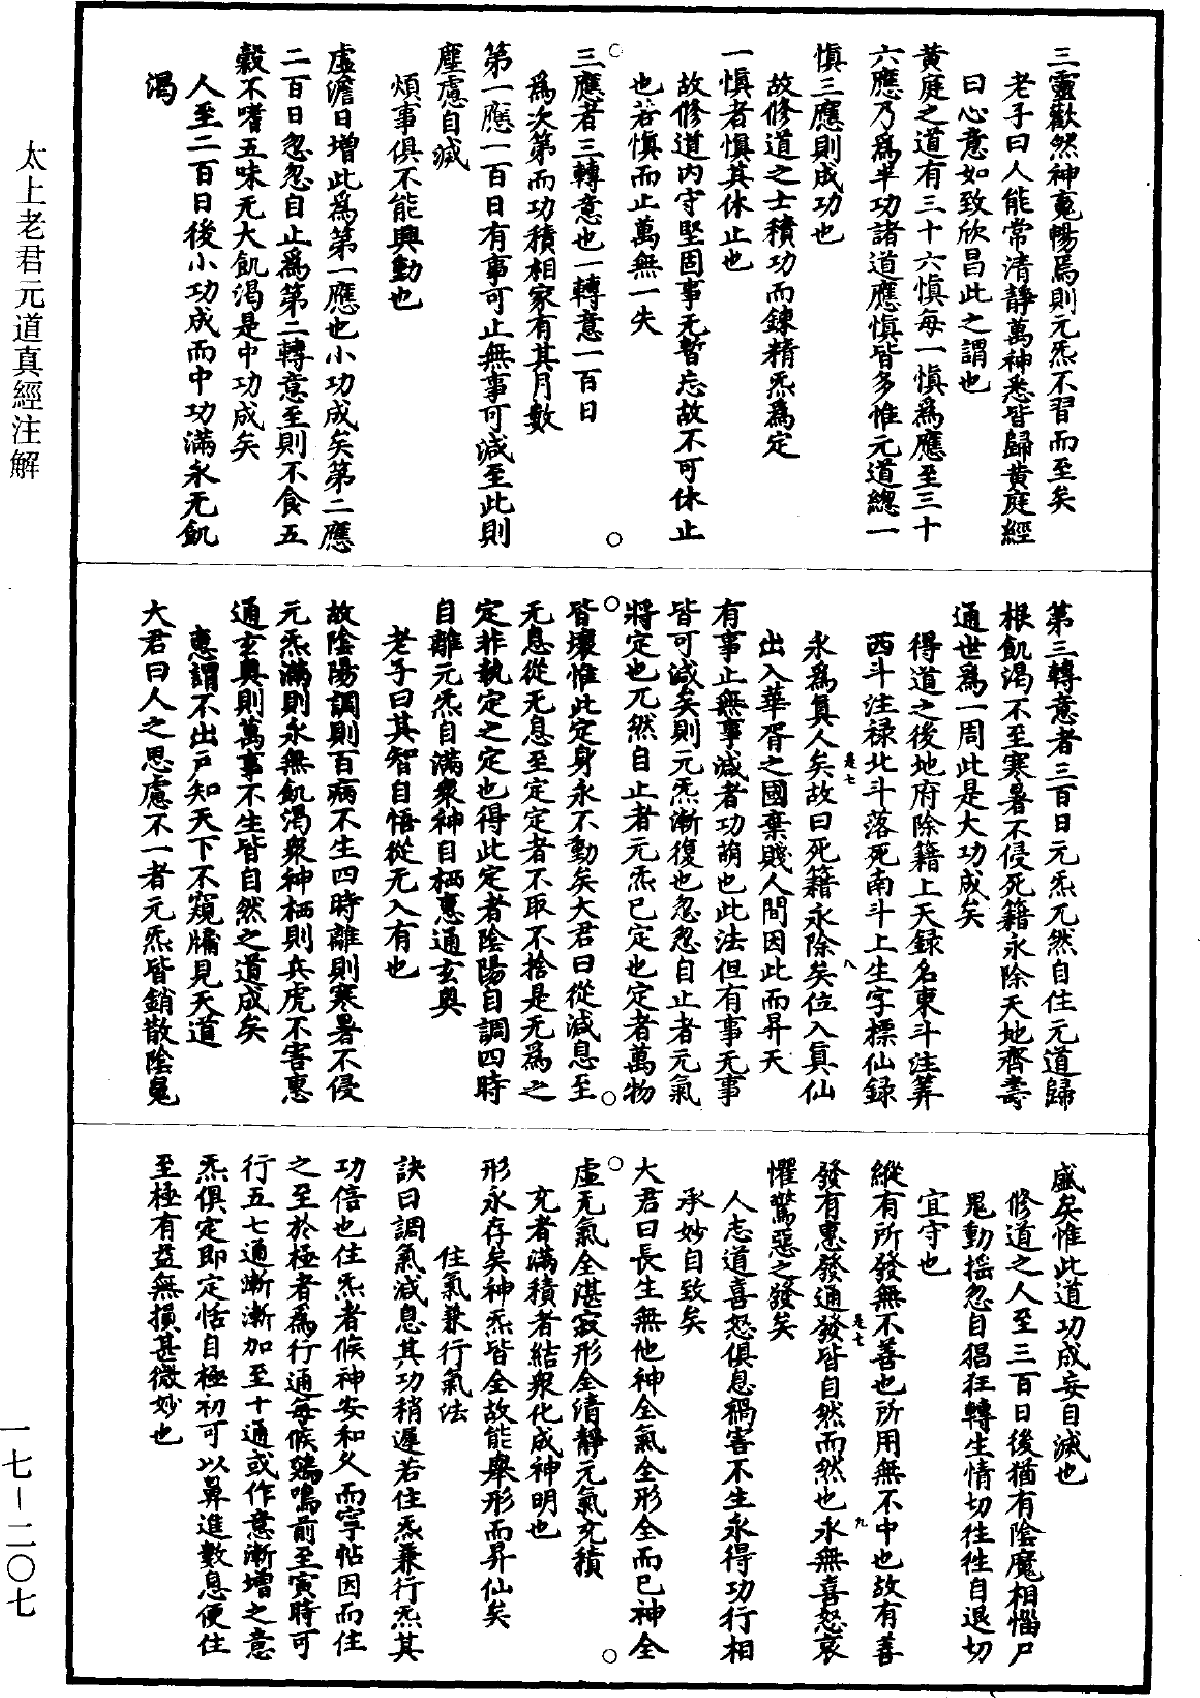 三靈歡然神䰟暢焉則元炁不習而至矣
老子曰人能常清靜萬神悉皆歸黃庭經
曰心意如致欣昌此之謂也
黃庭之道有三十六慎每一慎爲應至三十
六應乃爲半功諸道應慎皆多惟元道總一
慎三應則成功也
故修道之士積功而鍊精炁爲定
一慎者慎其休止也
故修道內守堅固事无暫忘故不可休止
也若慎而止萬無一失
三應者三轉意也一轉意一百日
爲次第而功積相家有其月數
第一應一百日有事可止無事可減至此則
塵慮自減
煩事俱不能興動也
虛澹日增此爲第一應也小功成矣第二應
二百日忽忽自止爲第二轉意至則不食五
穀不嗜五味无大飢渴是中功成矣
人至二百日後小功成而中功滿永无飢
渴
第三轉意者三百日元炁兀然自住元道歸
根飢渴不至寒暑不侵死籍永除天地齊壽
通世爲一周此是大功成矣
得道之後地府除籍上天録名東斗注筭
西斗注祿北斗落死南斗上生字標仙録
永爲眞人矣故曰死籍永除矣位入眞仙
出入華胥之國棄賤人間因此而昇天
有事止無事減者功萠也此法但有事无事
皆可減矣則元炁漸復也忽忽自止者元氣
將定也兀然自止者元炁已定也定者萬物
皆壞惟此定身永不動矣大君曰從減息至
无息從无息至定定者不取不捨是无爲之
定非執定之定也得此定者陰陽自調四時
自離元炁自滿衆神自栖惠通玄奥
老子曰其智自悟從无入有也
故陰陽調則百病不生四時離則寒暑不侵
元炁滿則永無飢渴衆神栖則兵虎不害惠
通玄奥則萬事不生皆自然之道成矣
惠謂不出戶知天下不窺牖見天道
大君曰人之思慮不一者元炁皆銷散陰䰟
盛矣惟此道功成妄自滅也
修道之人至三百日後猶有陰魔相惱尸
鬼動摇忽自猖狂轉生情切往往自退切
宜守也
縱有所發無不善也所用無不中也故有善
發有惠發通發皆自然而然也永無喜怒哀
懼驚惡之發矣
人志道喜怒俱息禍害不生永得功行相
承妙自致矣
大君曰長生無他神全氣全形全而已神全
虛无氣全湛寂形全清靜元氣充積
充者滿積者結衆化成神明也
形永存矣神炁皆全故能舉形而昇仙矣
住氣兼行氣法
訣曰調氣減息其功稍遲若住炁兼行炁其
功倍也住炁者候神安和久而寧帖因而住
之至於極者爲行通每候鷄鳴前至寅時可
行五七通漸漸加至十通或作意漸增之意
炁俱定即定恬自極初可以鼻進數息便住
至極有益無損甚微妙也
是七
八
是七
九
太上老君元道真經注解
一七-二〇七